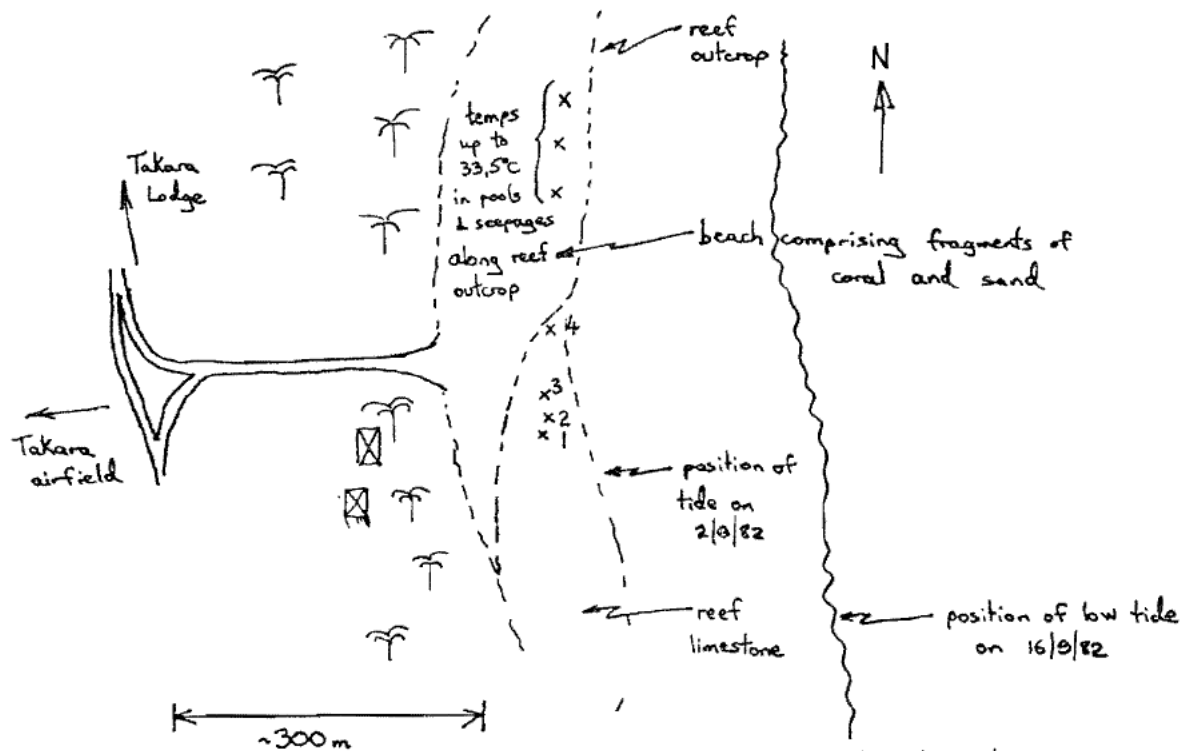 reef
outcrop
N
temps
up to
33,5°C
in pools
& seepages
along reef
outcrop
x
x
x
Takara
Lodge
beach comprising fragments of
coral and sand
x 4
x 3
x 2
x 1
Takara
airfield
position of
tide on
reef
limestone
position of low tide
on 16/9/82
~300m